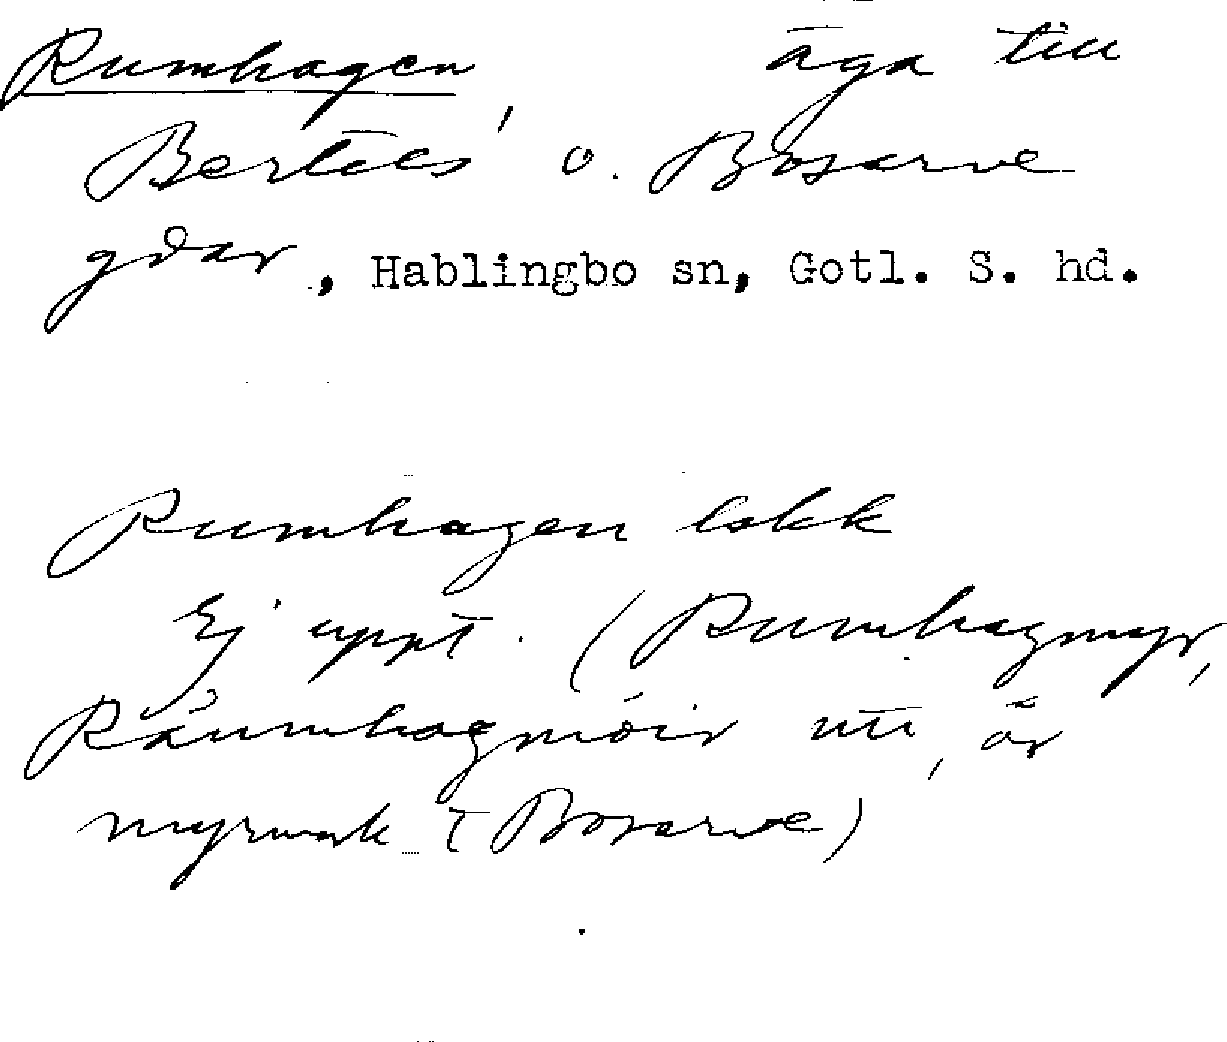 Rumhagen äga till
Bertels' o. Bosarve
gdar, Hablingbo sn, Gotl. S. hd.
Rumhagen lokk
Ej uppt. (Rumhagmyr,
Råumhagmöir uti, är
myrmark t Bosarve)